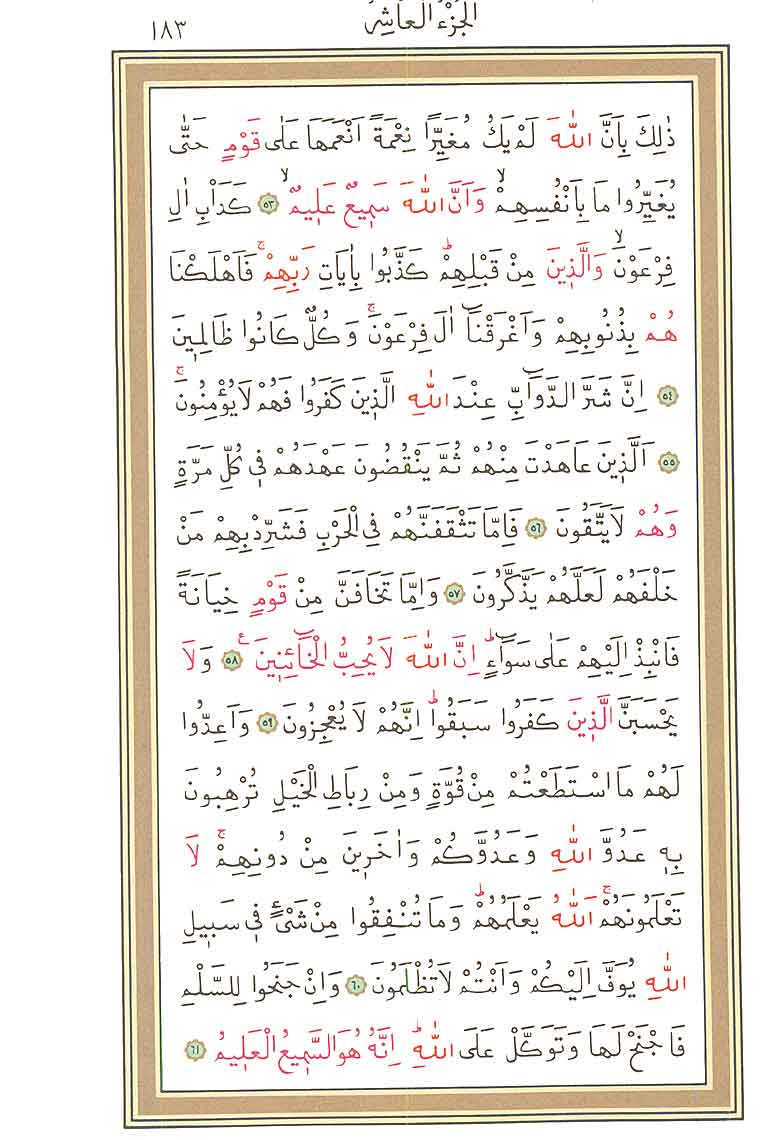 الجُزْءُ الْعَاشِرُ ١٨٣
ذٰلِكَ بِاَنَّ اللّٰهَ لَمْ يَكُ مُغَيِّرًا نِعْمَةً اَنْعَمَهَا عَلٰى قَوْمٍ حَتّٰى
يُغَيِّرُوا مَا بِاَنْفُسِهِمْۙ وَاَنَّ اللّٰهَ سَم۪يعٌ عَل۪يمٌۙ ٥٣ كَدَأْبِ اٰلِ
فِرْعَوْنَۙ وَالَّذ۪ينَ مِنْ قَبْلِهِمْۜ كَذَّبُوا بِاٰيَاتِ رَبِّهِمْۚ فَاَهْلَكْنَا
هُمْ بِذُنُوبِهِمْ وَاَغْرَقْنَٓا اٰلَ فِرْعَوْنَۚ وَكُلٌّ كَانُوا ظَالِم۪ينَ
٥٤ اِنَّ شَرَّ الدَّوَٓابِّ عِنْدَ اللّٰهِ الَّذ۪ينَ كَفَرُوا فَهُمْ لَا يُؤْمِنُونَۚ
٥٥ اَلَّذ۪ينَ عَاهَدْتَ مِنْهُمْ ثُمَّ يَنْقُضُونَ عَهْدَهُمْ ف۪ي كُلِّ مَرَّةٍ
وَهُمْ لَا يَتَّقُونَ ٥٦ فَاِمَّا تَثْقَفَنَّهُمْ فِي الْحَرْبِ فَشَرِّدْ بِهِمْ مَنْ
خَلْفَهُمْ لَعَلَّهُمْ يَذَّكَّرُونَ ٥٧ وَاِمَّا تَخَافَنَّ مِنْ قَوْمٍ خِيَانَةً
فَانْبِذْ اِلَيْهِمْ عَلٰى سَوَٓاءٍۜ اِنَّ اللّٰهَ لَا يُحِبُّ الْخَٓائِن۪ينَ۟ ٥٨ وَلَا
يَحْسَبَنَّ الَّذ۪ينَ كَفَرُوا سَبَقُواۜ اِنَّهُمْ لَا يُعْجِزُونَ ٥٩ وَاَعِدُّوا
لَهُمْ مَا اسْتَطَعْتُمْ مِنْ قُوَّةٍ وَمِنْ رِبَاطِ الْخَيْلِ تُرْهِبُونَ
بِه۪ عَدُوَّ اللّٰهِ وَعَدُوَّكُمْ وَاٰخَر۪ينَ مِنْ دُونِهِمْۚ لَا
تَعْلَمُونَهُمْۚ اَللّٰهُ يَعْلَمُهُمْۜ وَمَا تُنْفِقُوا مِنْ شَيْءٍ ف۪ي سَب۪يلِ
اللّٰهِ يُوَفَّ اِلَيْكُمْ وَاَنْتُمْ لَا تُظْلَمُونَ ٦٠ وَاِنْ جَنَحُوا لِلسَّلْمِ
فَاجْنَحْ لَهَا وَتَوَكَّلْ عَلَى اللّٰهِۜ اِنَّهُ هُوَ السَّم۪يعُ الْعَل۪يمُ ٦١